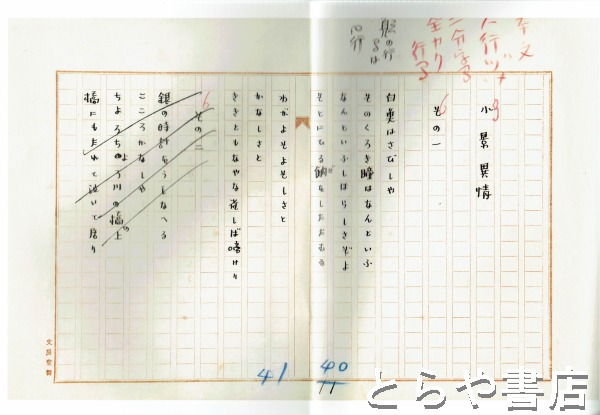 本文
小景異情
その一
白魚はさびしや
そのくろき瞳はなんといふ
なんといふしほらしさぞよ
そとにひる餉をしたたむる
わがよそよそしさと
かなしさと
ききともなやな雀しば啼けり
その二
銀の時計をうしなへる
こころかなしや
ちよろちよろ川の橋の上
橋にもたれて泣いて居り
40
41
文房堂製
とらや書店